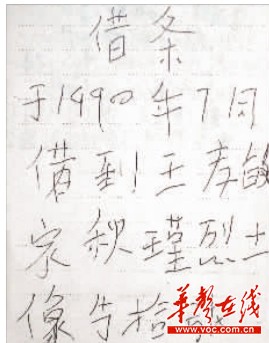 借条
于1990年7月
借到王孝敏
家秋瑾烈士
像
华声在线
www.voc.com.cn